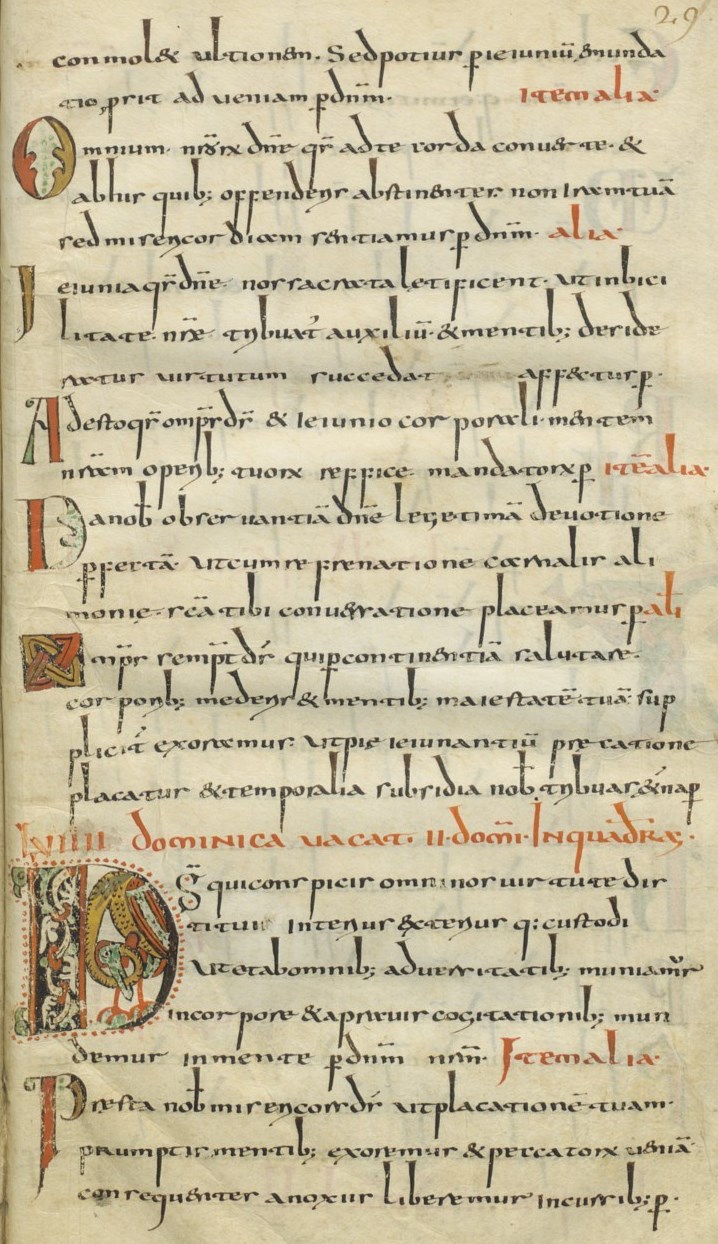 29
commolet& ultionem. Sed potius p ieiuniū emunda
tio prit ad veniam p dnm. Item alia.
Omnium nrōrx dnē qs̄ ad te corda converte. &
ablur quib; offendenr abstinenter non iram tuā
sed misericordiam sentiamur p dnm. alia.
Ieiunia qs̄ dnē nos sacrata letificent. ut inbici
litate nrē tribuat auxiliū. & mentib; deside
ratur virtutum succedat affectus p.
Adesto qs̄ omps ds̄ & ieiunio corporali mentem
nram operib; tuorx reffice mandatorx p Itē alia.
Da nob observantiā dnē legetimā devotione
pffectā. ut cum refrenatione carnalis ali
monie. scā tibi conversatione placeamus p ali
Omps sempt ds̄ qui p continentiā salutare.
corporib; mederis & mentib; maiestatē tuā sup
pliciť exoramus. ut pie ieiunantiū præcatione
placatur & temporalia subsidia nob tribuas, &
dominica vacat. II. domi. In quadras.
Ds̄ qui conspicis omni nos virtute dis
titui interius exterius q; custodi
ut ot ab omnib; adversitatib; muniamur
in corpore & a pravis cogitationib; mun
demur in mente p dnm nrm. Item alia.
Presta nob misericors ds̄ ut placationē tuam
prumptis mentib; exoremus & peccatorx veniā
consequenter a noxiis liberemur incursib; p.